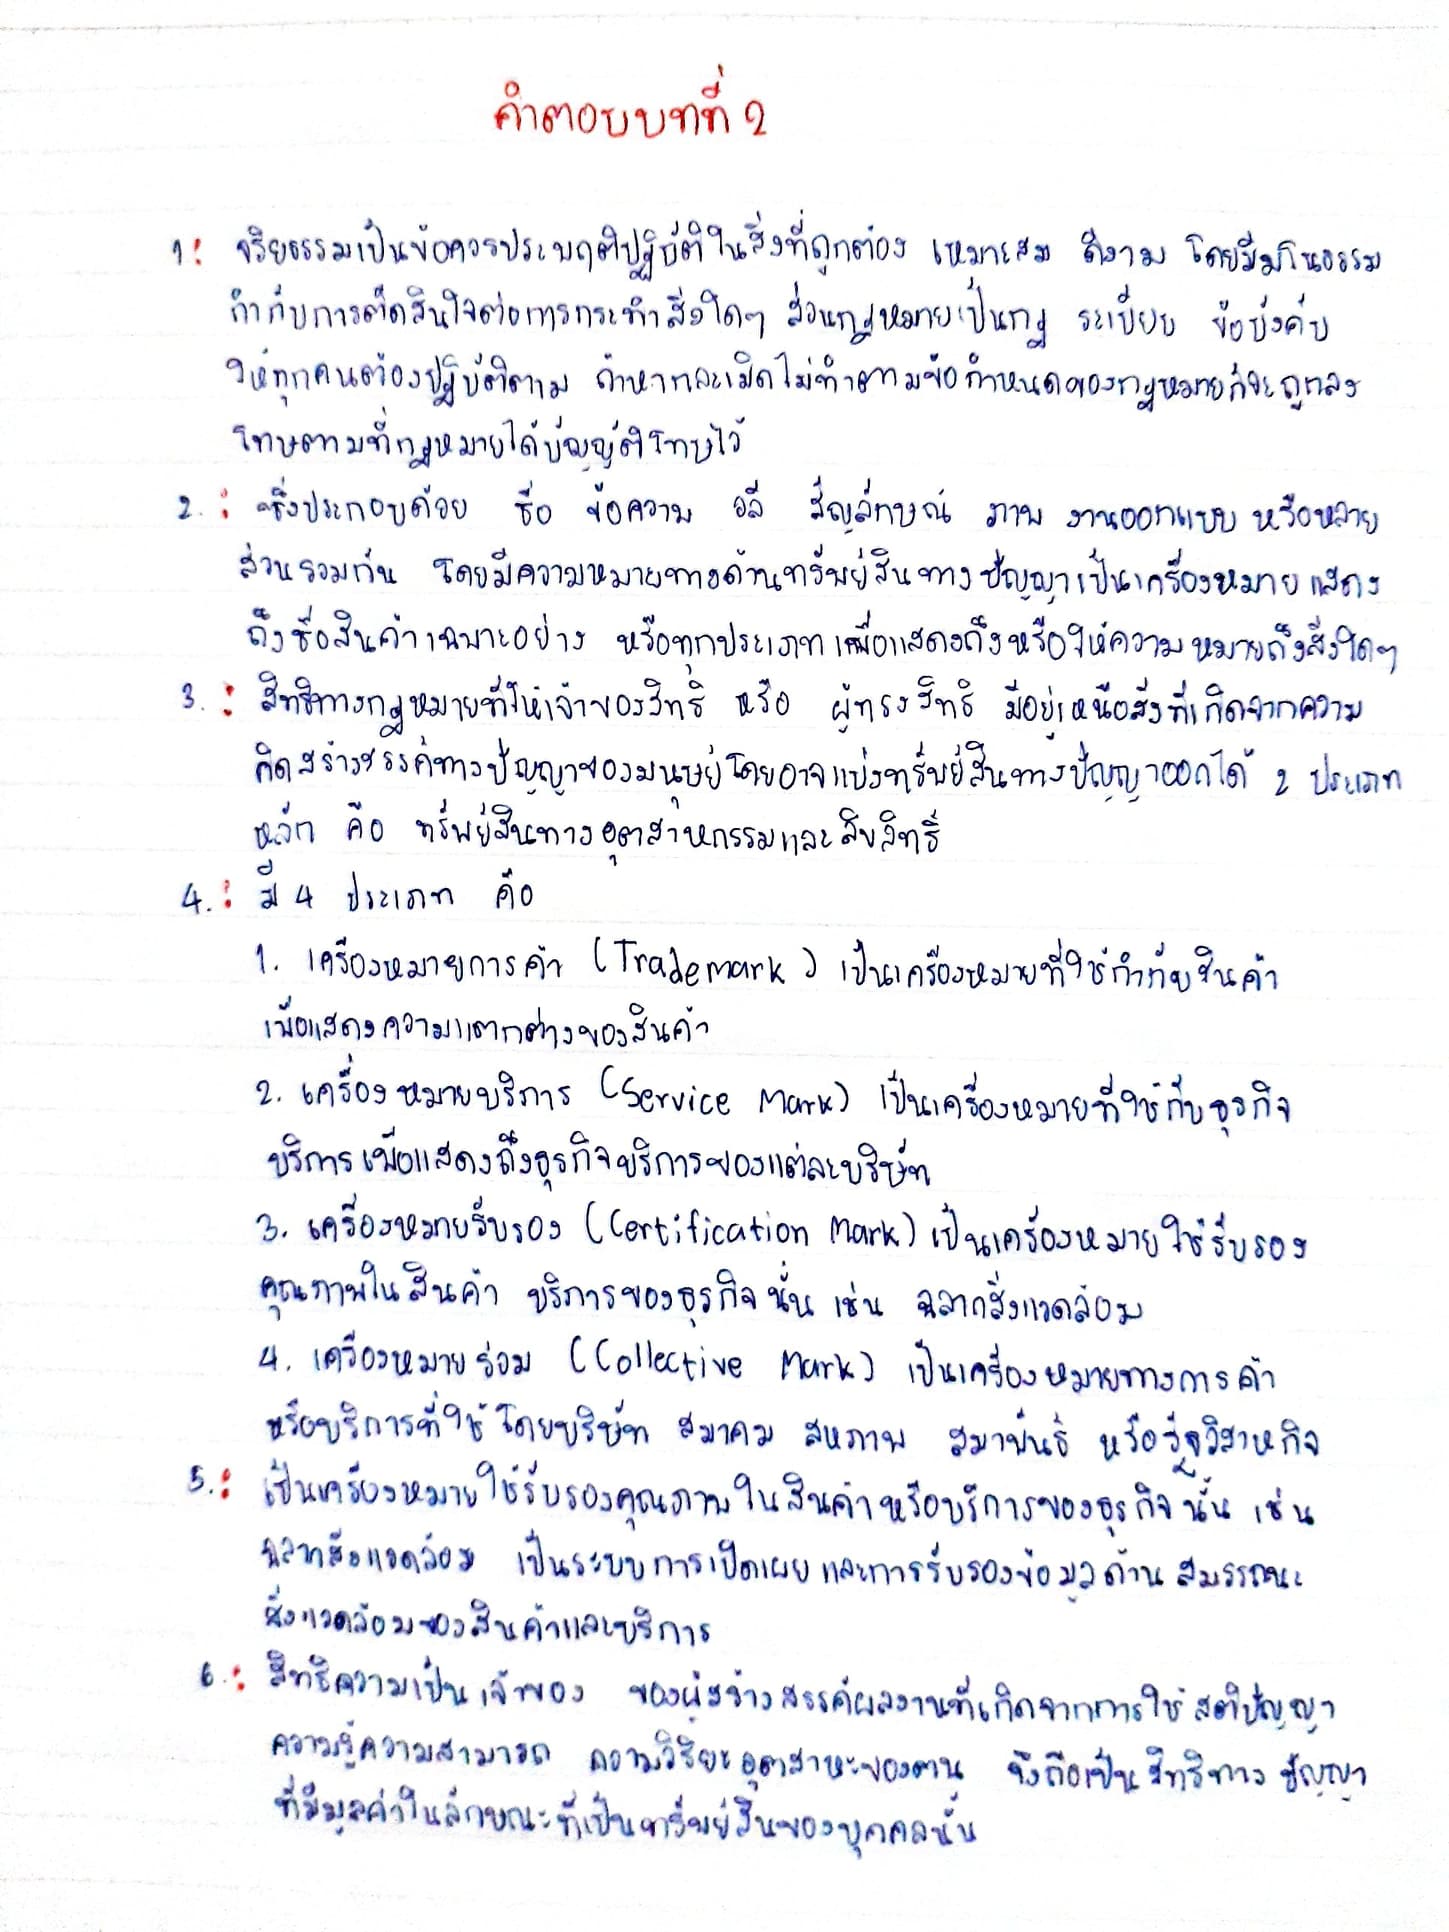 คำตอบบทที่ 2
1: จริยธรรมเป็นข้อควรประพฤติปฏิบัติในสิ่งที่ถูกต้อง เหมาะสม ดีงาม โดยมีมโนธรรม
กำกับการตัดสินใจต่อการกระทำสิ่งใดๆ ส่วนกฎหมายเป็นกฎ ระเบียบ ข้อบังคับ
ให้ทุกคนต้องปฏิบัติตาม ถ้าหากละเมิดไม่ทำตามข้อกำหนดของกฎหมายก็จะถูกลง
โทษตามที่กฎหมายได้บัญญัติโทษไว้
2. : ซึ่งประกอบด้วย ชื่อ ข้อความ วลี สัญลักษณ์ ภาพ งานออกแบบ หรือหลาย
ส่วนรวมกัน โดยมีความหมายทางด้านทรัพย์สินทางปัญญาเป็นเครื่องหมายแสดง
ถึงชื่อสินค้าเฉพาะอย่าง หรือทุกประเภทเพื่อแสดงถึงหรือให้ความหมายถึงสิ่งใดๆ
3. : สิทธิทางกฎหมายที่ให้เจ้าของสิทธิ หรือ ผู้ทรงสิทธิ มีอยู่เหนือสิ่งที่เกิดจากความ
คิดสร้างสรรค์ทางปัญญาของมนุษย์โดยอาจแบ่งทรัพย์สินทางปัญญาออกได้ 2 ประเภท
หลัก คือ ทรัพย์สินทางอุตสาหกรรมและลิขสิทธิ์
4. : มี 4 ประเภท คือ
1. เครื่องหมายการค้า (Trademark) เป็นเครื่องหมายที่ใช้กำกับสินค้า
เพื่อแสดงความแตกต่างของสินค้า
2. เครื่องหมายบริการ (Service Mark) เป็นเครื่องหมายที่ใช้กับธุรกิจ
บริการเพื่อแสดงถึงธุรกิจบริการของแต่ละบริษัท
3. เครื่องหมายรับรอง (Certification Mark) เป็นเครื่องหมายใช้รับรอง
คุณภาพในสินค้า บริการของธุรกิจนั้น เช่น ฉลากสิ่งแวดล้อม
4. เครื่องหมายร่วม (Collective Mark) เป็นเครื่องหมายทางการค้า
หรือบริการที่ใช้โดยบริษัท สมาคม สหภาพ สมาพันธ์ หรือรัฐวิสาหกิจ
5. : เป็นเครื่องหมายใช้รับรองคุณภาพในสินค้าหรือบริการของธุรกิจนั้น เช่น
ฉลากสิ่งแวดล้อม เป็นระบบการเปิดเผยและการรับรองข้อมูลด้านสมรรถนะ
สิ่งแวดล้อมของสินค้าและบริการ
6. : สิทธิความเป็นเจ้าของ ของผู้สร้างสรรค์ผลงานที่เกิดจากการใช้สติปัญญา
ความรู้ความสามารถ ความวิริยะอุตสาหะของตน จึงถือเป็นสิทธิทางปัญญา
ที่มีมูลค่าในลักษณะที่เป็นทรัพย์สินของบุคคลนั้น